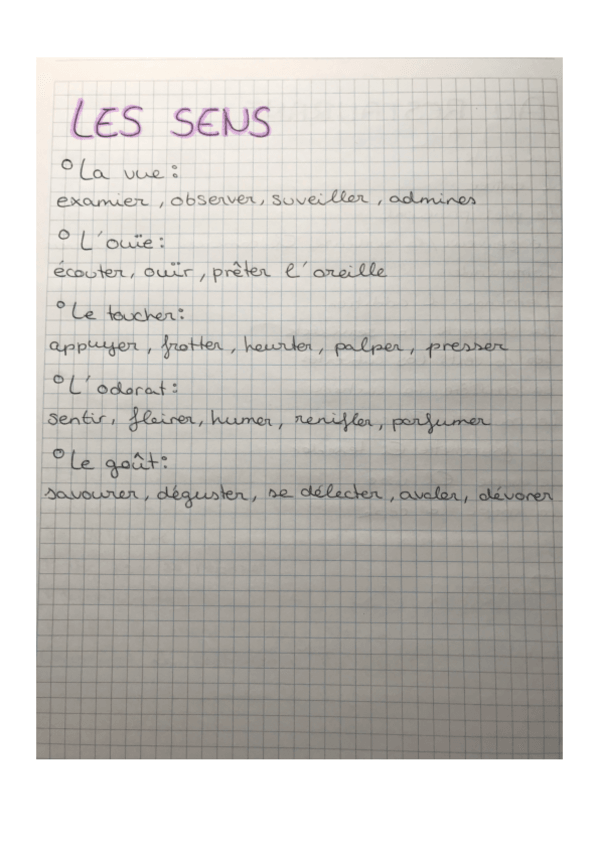 LES SENS
° La vue :
examier, observer, suveiller, admires
° L'ouïe :
écouter, ouïr, prêter l'oreille
° Le toucher :
appuyer, frotter, heurter, palper, presser
° L'odorat :
sentir, flairer, humer, renifler, parfumer
° Le goût :
savourer, déguster, se délecter, avaler, dévorer